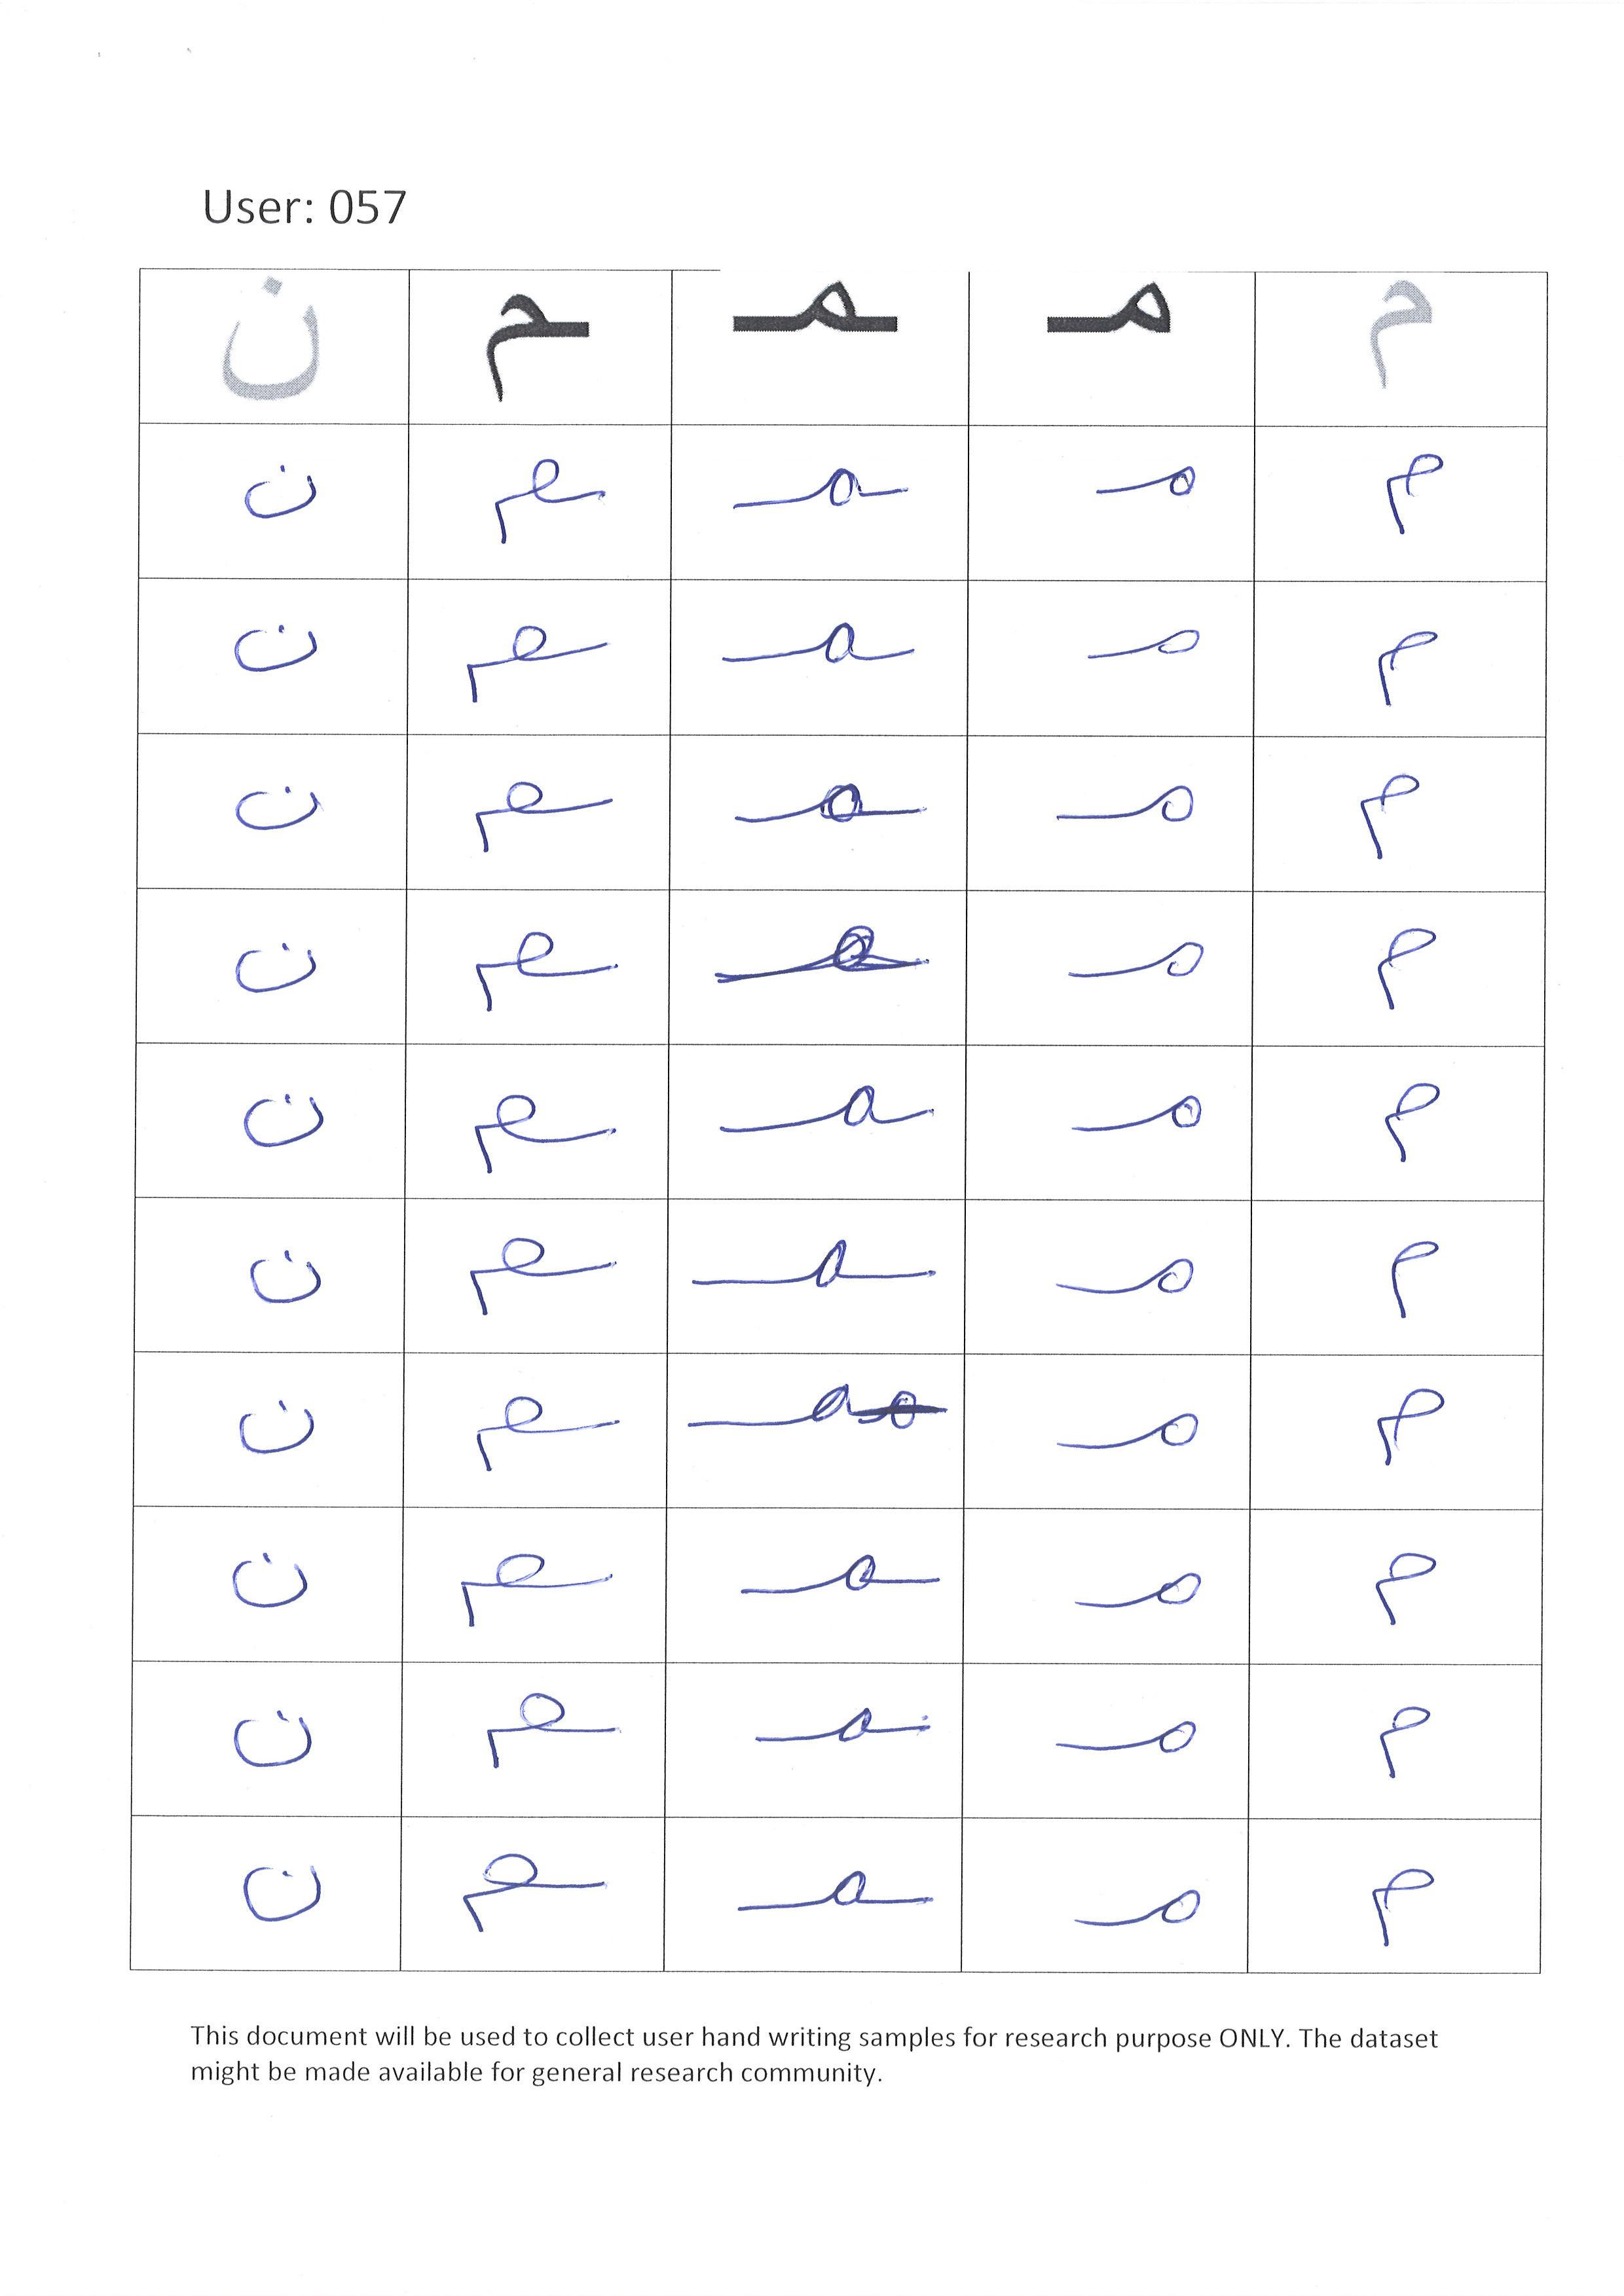 User: 057
م مـ ـمـ ـم ن
م مـ ـمـ ـم ن
م مـ ـمـ ـم ن
م مـ ـمـ ـم ن
م مـ ـمـ ـم ن
م مـ ـمـ ـم ن
م مـ ـمـ ـم ن
م مـ ـمـ ـم ن
م مـ ـمـ ـم ن
م مـ ـمـ ـم ن
م مـ ـمـ ـم ن
This document will be used to collect user hand writing samples for research purpose ONLY. The dataset
might be made available for general research community.